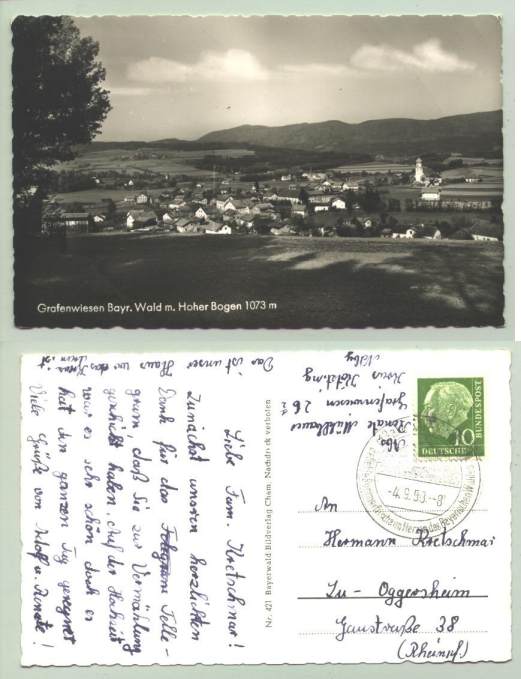 Grafenwiesen Bayr. Wald m. Hoher Bogen 1073 m
Das ist unser Haus wo das Kreuz ist
Liebe Fam. Kretschmar!
Zunächst unseren herzlichsten
Dank für das Telegram Tele-
gram, daß Sie zur Vermählung
geschickt haben. Auf der Hochzeit
war es sehr schön doch es
hat den ganzen Tag geregnet
Viele Grüße von Adolf u. Renate!
Nr. 421 Bayerwald Bildverlag Cham. Nachdruck verboten
Abs.
Renate Mühlbauer
Grafenwiesen 26
Kreis Kötzting
DEUTSCHE
BUNDESPOST
10
-4.9.58.-8
An
Hermann Kretschmar
Lu-Oggersheim
Gaustraße 38
(Rheinpf.)